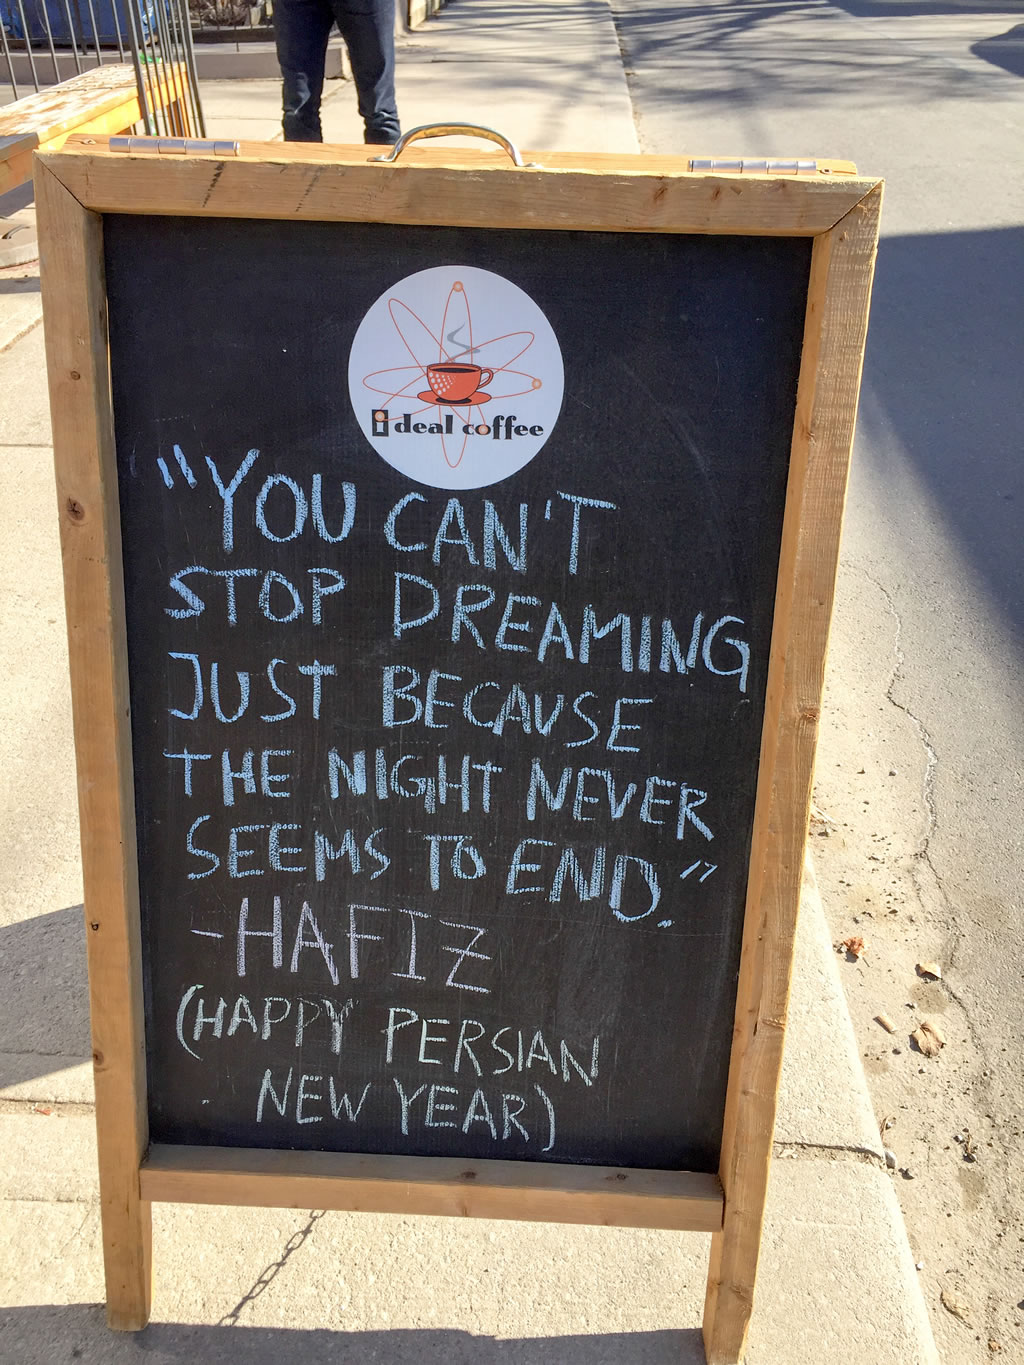 ideal coffee
"YOU CAN'T
STOP DREAMING
JUST BECAUSE
THE NIGHT NEVER
SEEMS TO END."
-HAFIZ
(HAPPY PERSIAN
NEW YEAR)